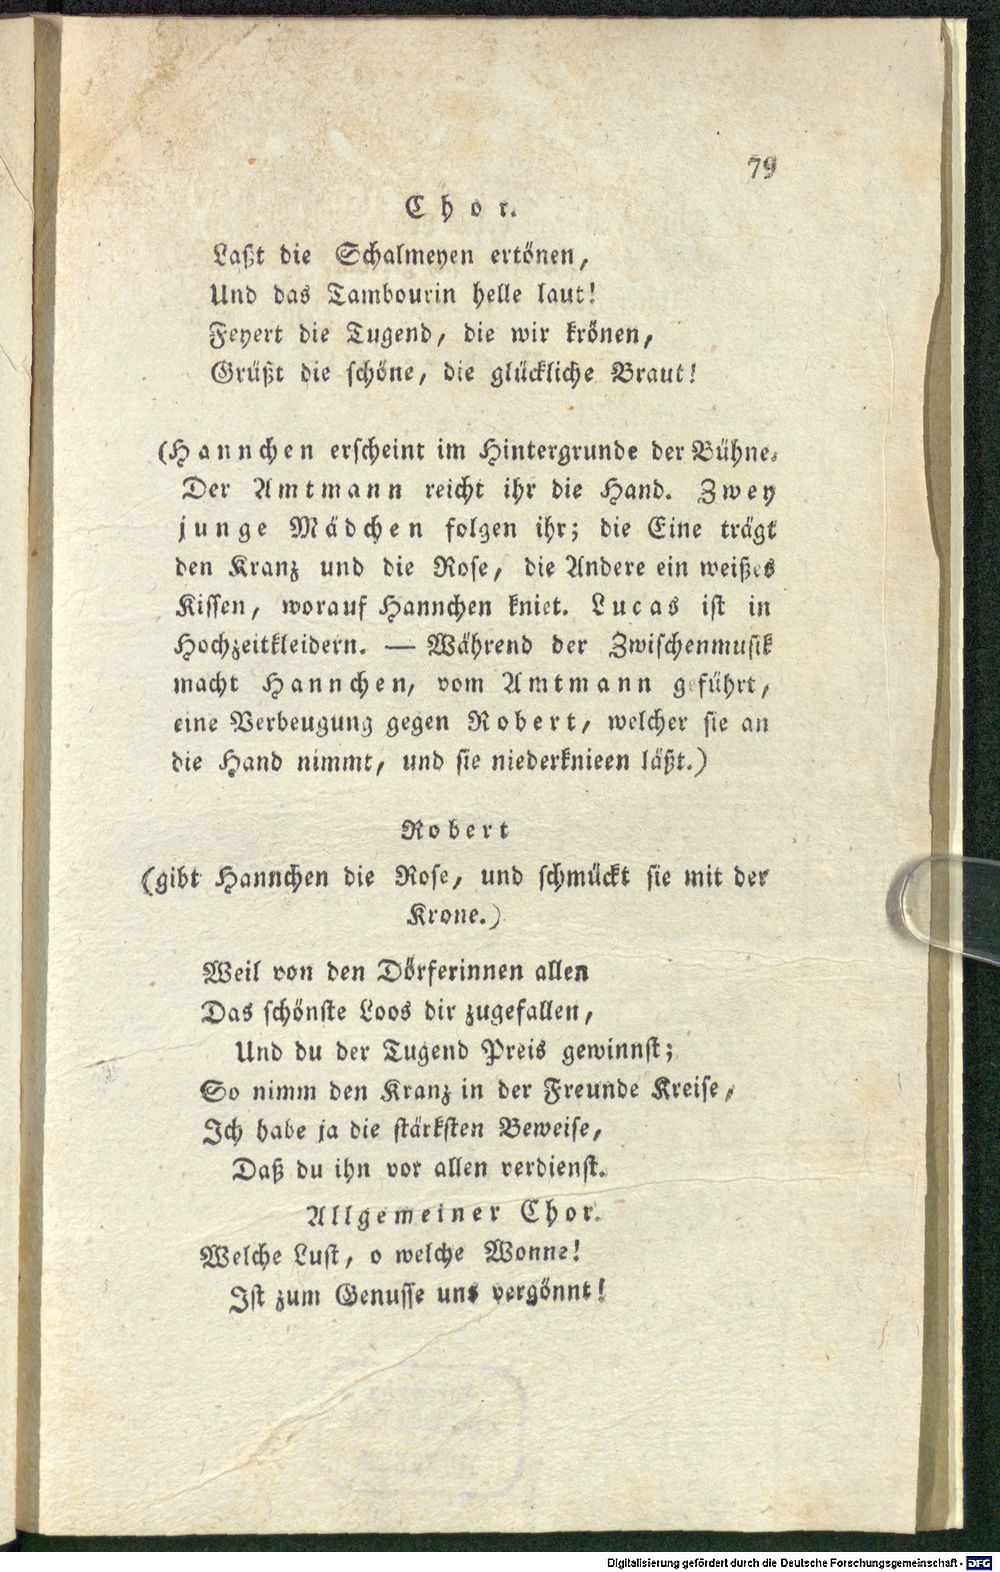 79
Chor.
Laßt die Schalmeyen ertönen,
Und das Tambourin helle laut!
Feyert die Tugend, die wir krönen,
Grüßt die schöne, die glückliche Braut!
(Hannchen erscheint im Hintergrunde der Bühne.
Der Amtmann reicht ihr die Hand. Zwey
junge Mädchen folgen ihr; die Eine trägt
den Kranz und die Rose, die Andere ein weißes
Kissen, worauf Hannchen kniet. Lucas ist in
Hochzeitkleidern. — Während der Zwischenmusik
macht Hannchen, vom Amtmann geführt,
eine Verbeugung gegen Robert, welcher sie an
die Hand nimmt, und sie niederknieen läßt.)
Robert
(gibt Hannchen die Rose, und schmückt sie mit der
Krone.)
Weil von den Dörferinnen allen
Das schönste Loos dir zugefallen,
Und du der Tugend Preis gewinnst;
So nimm den Kranz in der Freunde Kreise,
Ich habe ja die stärksten Beweise,
Daß du ihn vor allen verdienst.
Allgemeiner Chor.
Welche Lust, o welche Wonne!
Ist zum Genusse uns vergönnt!
Digitalisierung gefördert durch die Deutsche Forschungsgemeinschaft - DFG